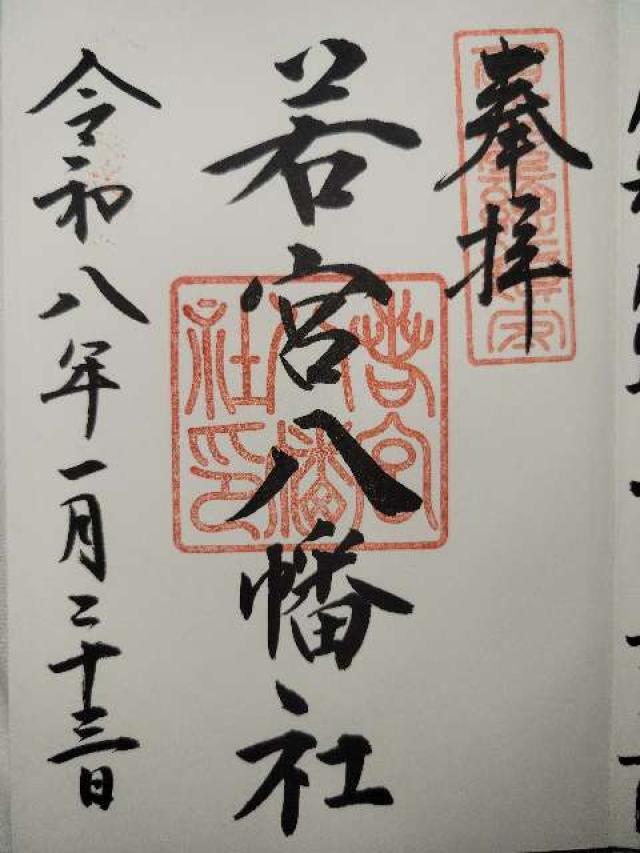 奉拝
若宮八幡社
若宮八幡社印
令和八年一月二十三日